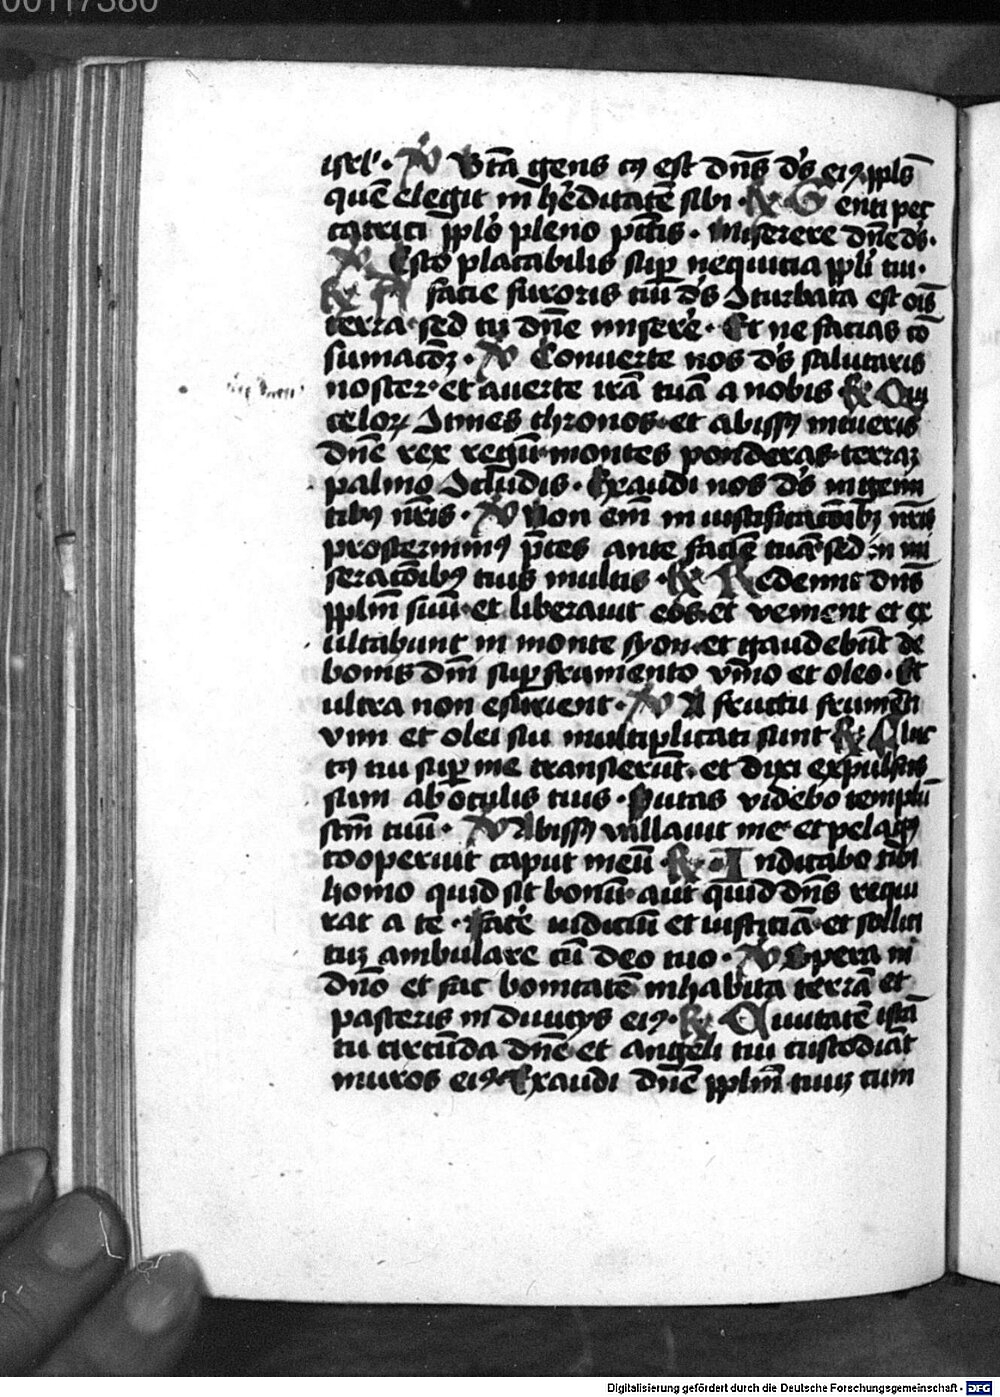 00117380
isrl'. V Bt̄a gens cꝰ est dn̄s d's eiꝰ ppl̄s
quē elegit in h'editatē sibi. R G enti pec
catrici ppl'o pleno pctīs. Miserere dn̄e d's.
V Esto placabilis suꝑ nequitia ppl'i tui.
R A facie furoris tui d's ↄturbata est oīs
terra. sed tu dn̄e miser'e. Et ne facias cō
sumacōꝫ. V Conuerte nos d's salutaris
noster. et auerte irā tuā a nobis R Qui
celoꝝ ↄtines thronos. et abissꝰ intueris
dn̄e rex regū. montes ponderas. terraꝫ
palmo ↄcludis. Exaudi nos d's in gemi
tibꝰ nr̄is. V Non em̄ in iustificacōibꝫ nr̄is
prosternimꝰ p̄ces ante faciē tuā. sed in mi
seracōibꝰ tuis multis. R Redemit dn̄s
pplm̄ suū. et liberauit eos. et venient et ex
ultabunt in monte syon. et gaudebūt de
bonis dn̄i suꝑ frumento vīno et oleo. Et
ultra non esurient. V A fructu frumēti
vini et olei sui multiplicati sunt R Fluc
tꝰ tui suꝑ me transierūt. et dixi expulsus
sum ab oculis tuis. Putas videbo templū
scm̄ tuū. V Abissꝰ vallauit me et pelagꝰ
cooperuit caput meū R I ndicabo tibi
homo quid sit bonū. aut quid dn̄s requi
rat a te. Fac'e iudiciū et iusticiā. et sollici
tuꝫ ambulare cū deo tuo. V Spera in
dn̄o et fac bonitatē inhabita terrā et
pasceris in diuicijs eiꝰ. R Ciuitatē istā
tu circūda dn̄e et angeli tui custodiāt
muros eiꝰ. Exaudi dn̄e pplm̄ tuuꝫ cum
Digitalisierung gefördert durch die Deutsche Forschungsgemeinschaft - DFG